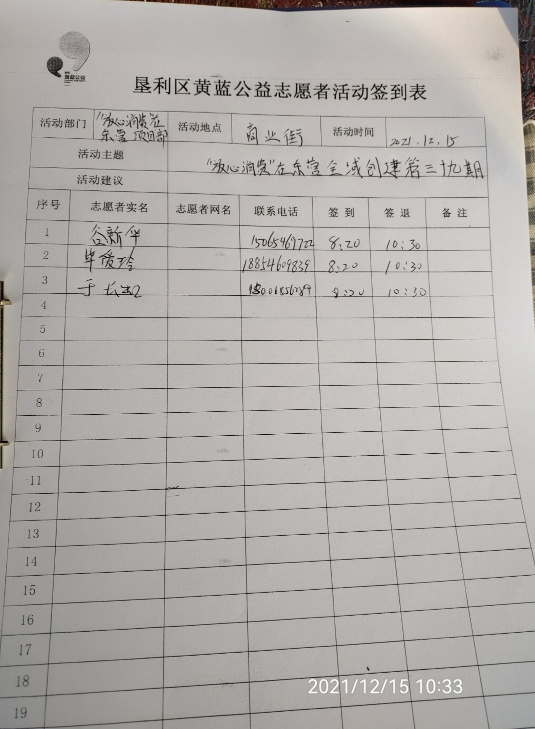 黄蓝公益
垦利区黄蓝公益志愿者活动签到表
活动部门 "放心消费"在东营项目部 活动地点 商业街 活动时间 2021.12.15
活动主题 "放心消费"在东营全域创建第三十九期
活动建议
序号 志愿者实名 志愿者网名 联系电话 签到 签退 备注
1 谷新华 15065469722 8:20 10:30
2 毕爱玲 18854609839 8:20 10:30
3 于 8:20 10:30
4
5
6
7
8
9
10
11
12
13
14
15
16
17
18
19
2021/12/15 10:33